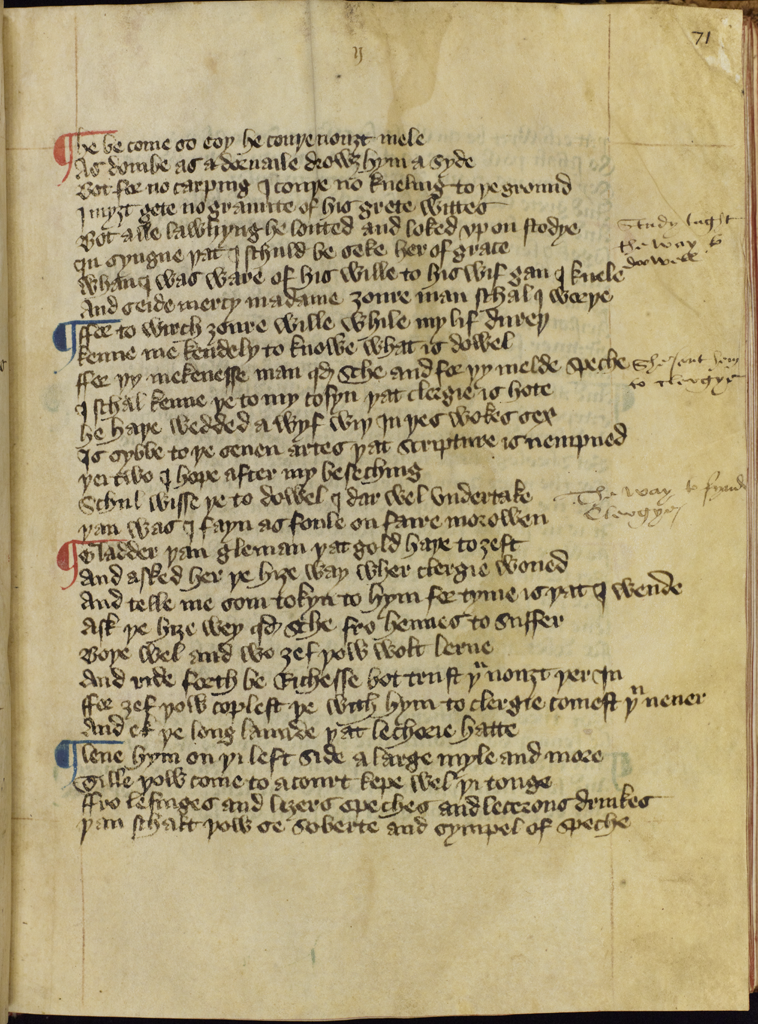 71
He be come so coy he couþe nouȝt mele
As dombe as a dornaile drowȝ hym a syde
Bot for no carping I couþe no kneling to þe ground
I myȝt gete no grainne of his grete wittes
Bot alle lawhyng he louted and loked vpon stodye
In syngne þat I schuld be seke her of grace
Whan I was ware of his wille to his wif gan I knele
And seide mercy madame ȝoure man schal I worþe
Study taght
the way to
dowell
ffor to wirch ȝoure wille while my lif dureþ
kenne me kendely to knowe what is dowel
ffor þy mekenesse man qd sche and for þy melde speche
She sent hym
to clergye
I schal kenne þe to my cosyn þat clergie is hote
he haþe wedded a wyf wiþ In þes wokes sex
Is sybbe to þe seuen artes þat scripture is nempned
þei two I hope after my beseching
Schul wisse þe to dowel I dar wel vndertake
The way to fynde
Clergye
þan was I fayn as foule on faire morowen
Gladder þan gleman þat gold haþe to ȝeft
And asked her þe hiȝe way wher clergie woned
And telle me som tokyn to hym for tyme is þat I wende
Ask þe hiȝe wey qd sche fro hennes to suffer
Boþe wel and wo ȝef þow wolt lerne
And ride forth be Richesse bot trust þu nouȝt þer In
ffor ȝef þow coplest þe with hym to clergie comest þu neuer
And ek þe long launde þat lecherie hatte
leue hym on þi left side a large myle and more
Tille þow come to a court kepe wel þi tonge
ffro lesinges and liȝers speches and lecerous drinkes
þan schalt þow se Soberte and sympel of speche